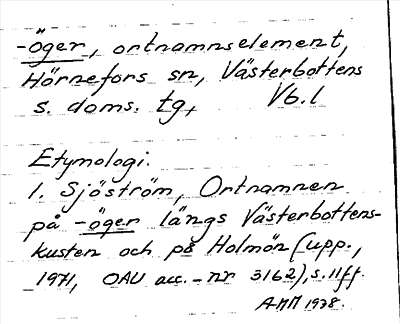 -öger, ortnamnselement,
Hörnefors sn, Västerbottens
s. doms. tg, Vb.l
Etymologi.
1. Sjöström, Ortnamnen
på -öger längs Västerbottens-
kusten och på Holmön (upp.,
1971, OAU acc.-nr 3162), s. 11 ff.
AMM 1978.